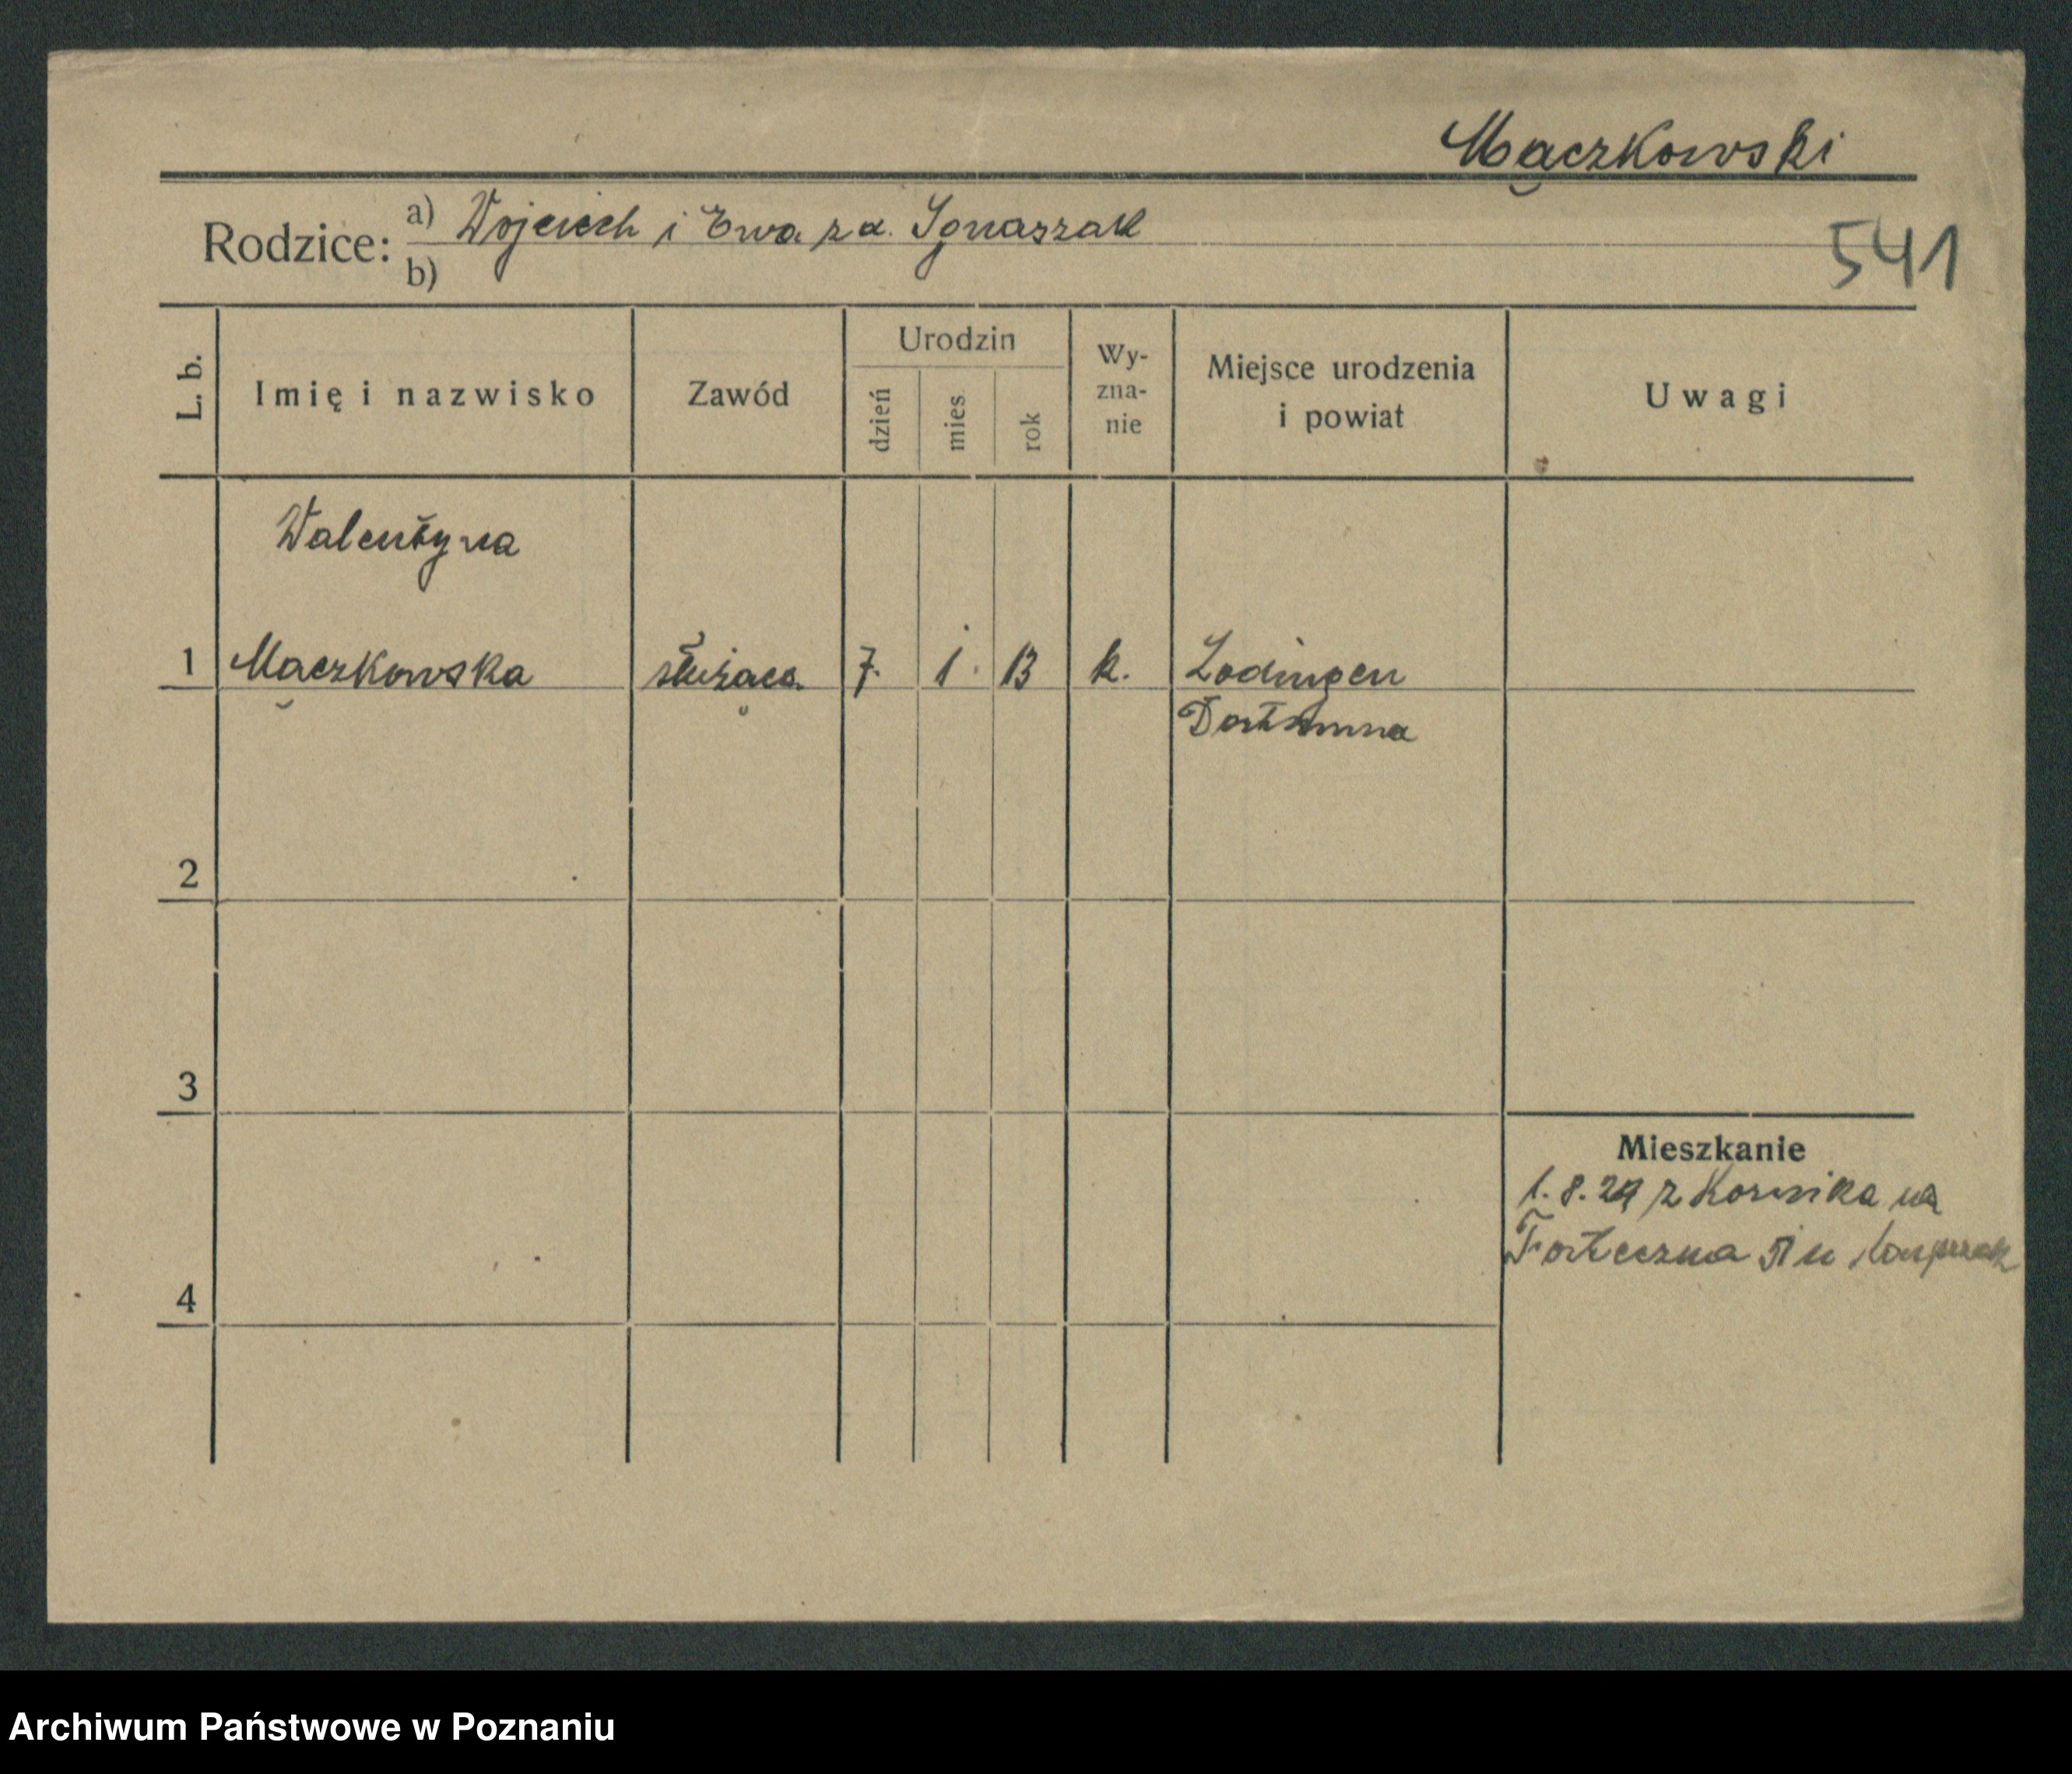 Mączkowski
Rodzice: a) Wojciech i Ewa z d. Ignaszak
541
b)
L. b.
Imię i nazwisko
Zawód
Urodzin
dzień
mies.
rok
Wy-
zna-
nie
Miejsce urodzenia
i powiat
Uwagi
Walentyna
1 Mączkowska służąca 7. 1. 13 k. Lodingen
2
3
Mieszkanie
1. 8. 29 z Kornika na
Forteczna 51 u
4
Archiwum Państwowe w Poznaniu